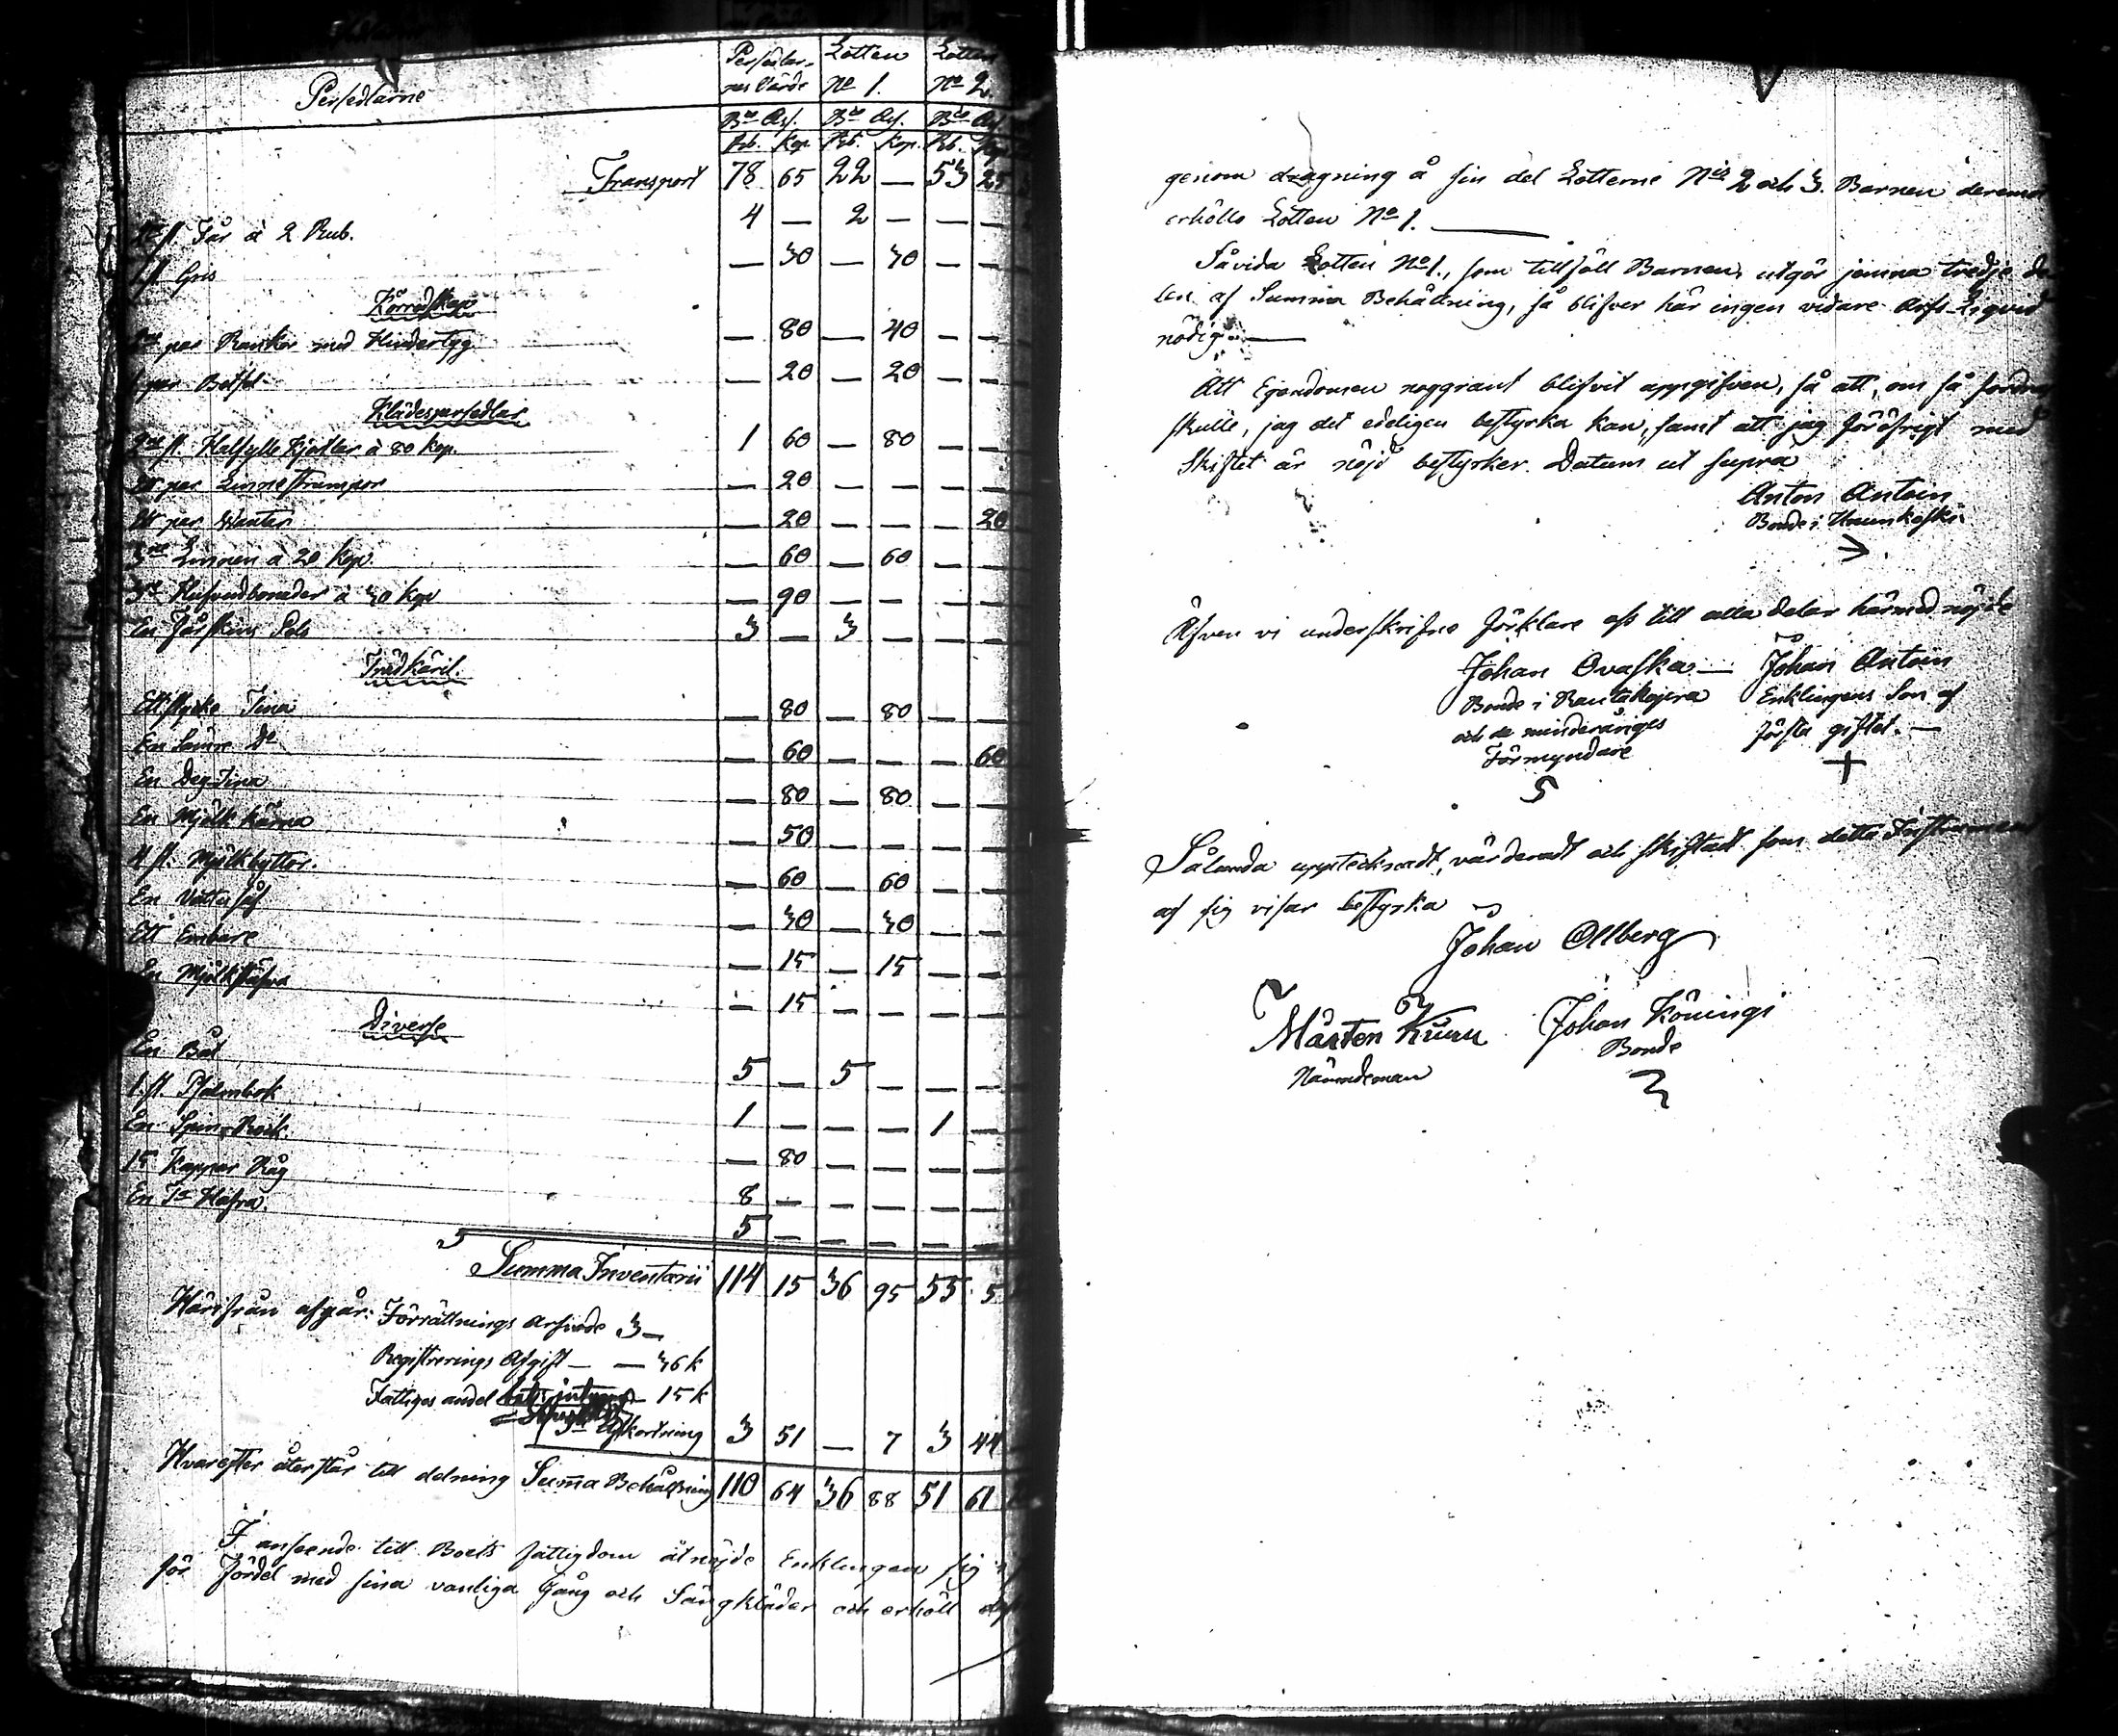 Persedlarne Persedlar- Lotten Lotten
nes Värde No 1. No 2.
Bco Ass. Bco Ass. Bco Ass.
Rb. Kop. Rb. Kop. Rb. Kop.
Transport 78 65 22 — 53 25
2ne st. Får à 2 Rub. 4 — 2 — — —
1 st. Gris — 30 — 30 — —
Körredskap
2ne par Rankor med Hindertyg — 80 — 40 — —
1 par Betsel — 20 — 20 — —
Klädespersedlar
2ne st. Halfylle Kjortlar à 80 kop. 1 60 — 80 — —
Ett par Linne Strumpor — 20 — — — —
Ett par Wantar — 20 — — — 20
3ne Linnen à 20 kop. — 60 — 60 — —
3ne Hufvudbonader à 30 kop — 90 — — — —
En Fårskins Pels 3 — 3 — — —
Trädkäril.
Ett stycke Tina — 80 — 80 — —
En sämre Do — 60 — — — 60
En Deg-Tina — 80 — 80 — —
En Mjölk kärna — 50 — — — —
4 st. Mjölkbyttor. — 60 — 60 — —
En Vattu så — 30 — 30 — —
Ett Embare — 15 — 15 — —
En Mjölkstäfva — 15 — — — —
Diverse
En Båt 5 — 5 — — —
1 st. Psalmbok 1 — — — 1 —
En Spinn-Rock — 80 — — — —
15 Kappar Råg 8 — — — — —
En Ta Hafra. 5 — — — — —
Summa Inventarii 114 15 36 95 55 5
Härifrån afgår: Förrättnings Arfvode 3 —
Registrerings Afgift — — 36 k
Fattiges andel 15 k
Afkortning 3 51 — 7 3 44
Hvarefter återstår till delning Summa Behållning 110 64 36 88 51 61
I anseende till Boets fattigdom åtnöjde Enklingen sig
för Fördel med sina vanliga Gång och Sängkläder och erhöll
genom dragning å sin del Lotterne Nis 2 och 3. Barnen deremot
erhöllo Lotten No 1.
Såvida Lotten No 1., som tillföll Barnen, utgör jemna tredje de
len af Summa Behållning, så blifver här ingen vidare Arfs-Liqvid
nödig. —
Att Egendomen noggrant blifvit uppgifven, så att, om så fordras
skulle, jag det edeligen bestyrka kan, samt att jag föröfrigt med
Skiftet är nöjd bestyrker. Datum ut supra
Anton Antoin
Bonde i Unnunkoski
Äfven vi underskrifne förklare oss till alla delar härmed nöjde
Johan Ovaska — Johan Antoin
Bonde i Rantakojera Enklingens Son af
och de minderåriges första giftet. —
Förmyndare
Sålunda upptecknadt, värderadt och skiftadt som detta Instrument
af sig visar bestyrka
Johan Ollberg
Mårten Kuru Johan Köningi
Nämndeman Bonde